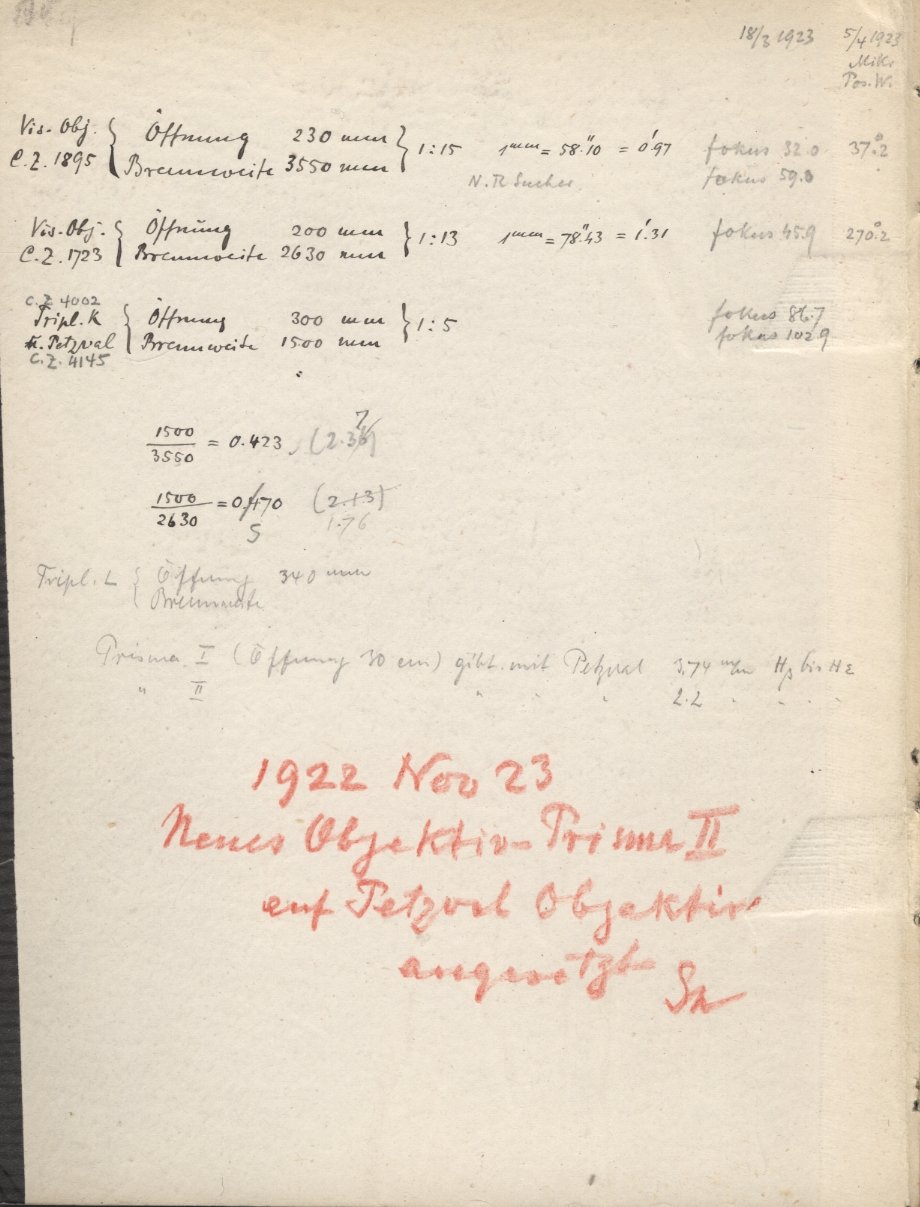 18/3 1923 5/4 1923
Mikr
Pos. W.
Vis-Obj. { Öffnung 230 mm } 1:15 1mm = 58".10 = 0'.97 fokus 32.0 37°.2
C.Z. 1895 Brennweite 3550 mm
N.R Sucher fokus 59.0
Vis-Obj. { Öffnung 200 mm } 1:13 1mm = 78".43 = 1'.31 fokus 45.9 270°.2
C.Z. 1723 Brennweite 2630 mm
C.Z. 4002
Tripl. K { Öffnung 300 mm } 1:5 fokus 86.7
u. Petzval Brennweite 1500 mm fokus 102.9
C.Z. 4145
1500/3550 = 0.423, (2.36) 7
1500/2630 = 0.470 (2.13)
5 1.76
Tripl. L { Öffnung 340 mm
Brennweite
Prisma I (Öffnung 30 cm) gibt mit Petzval 3.74 mm Hβ bis Hε
" II " " " 2.2 " " " "
1922 Nov 23
Neues Objektiv-Prisma II
auf Petzval Objektiv
angesetzt